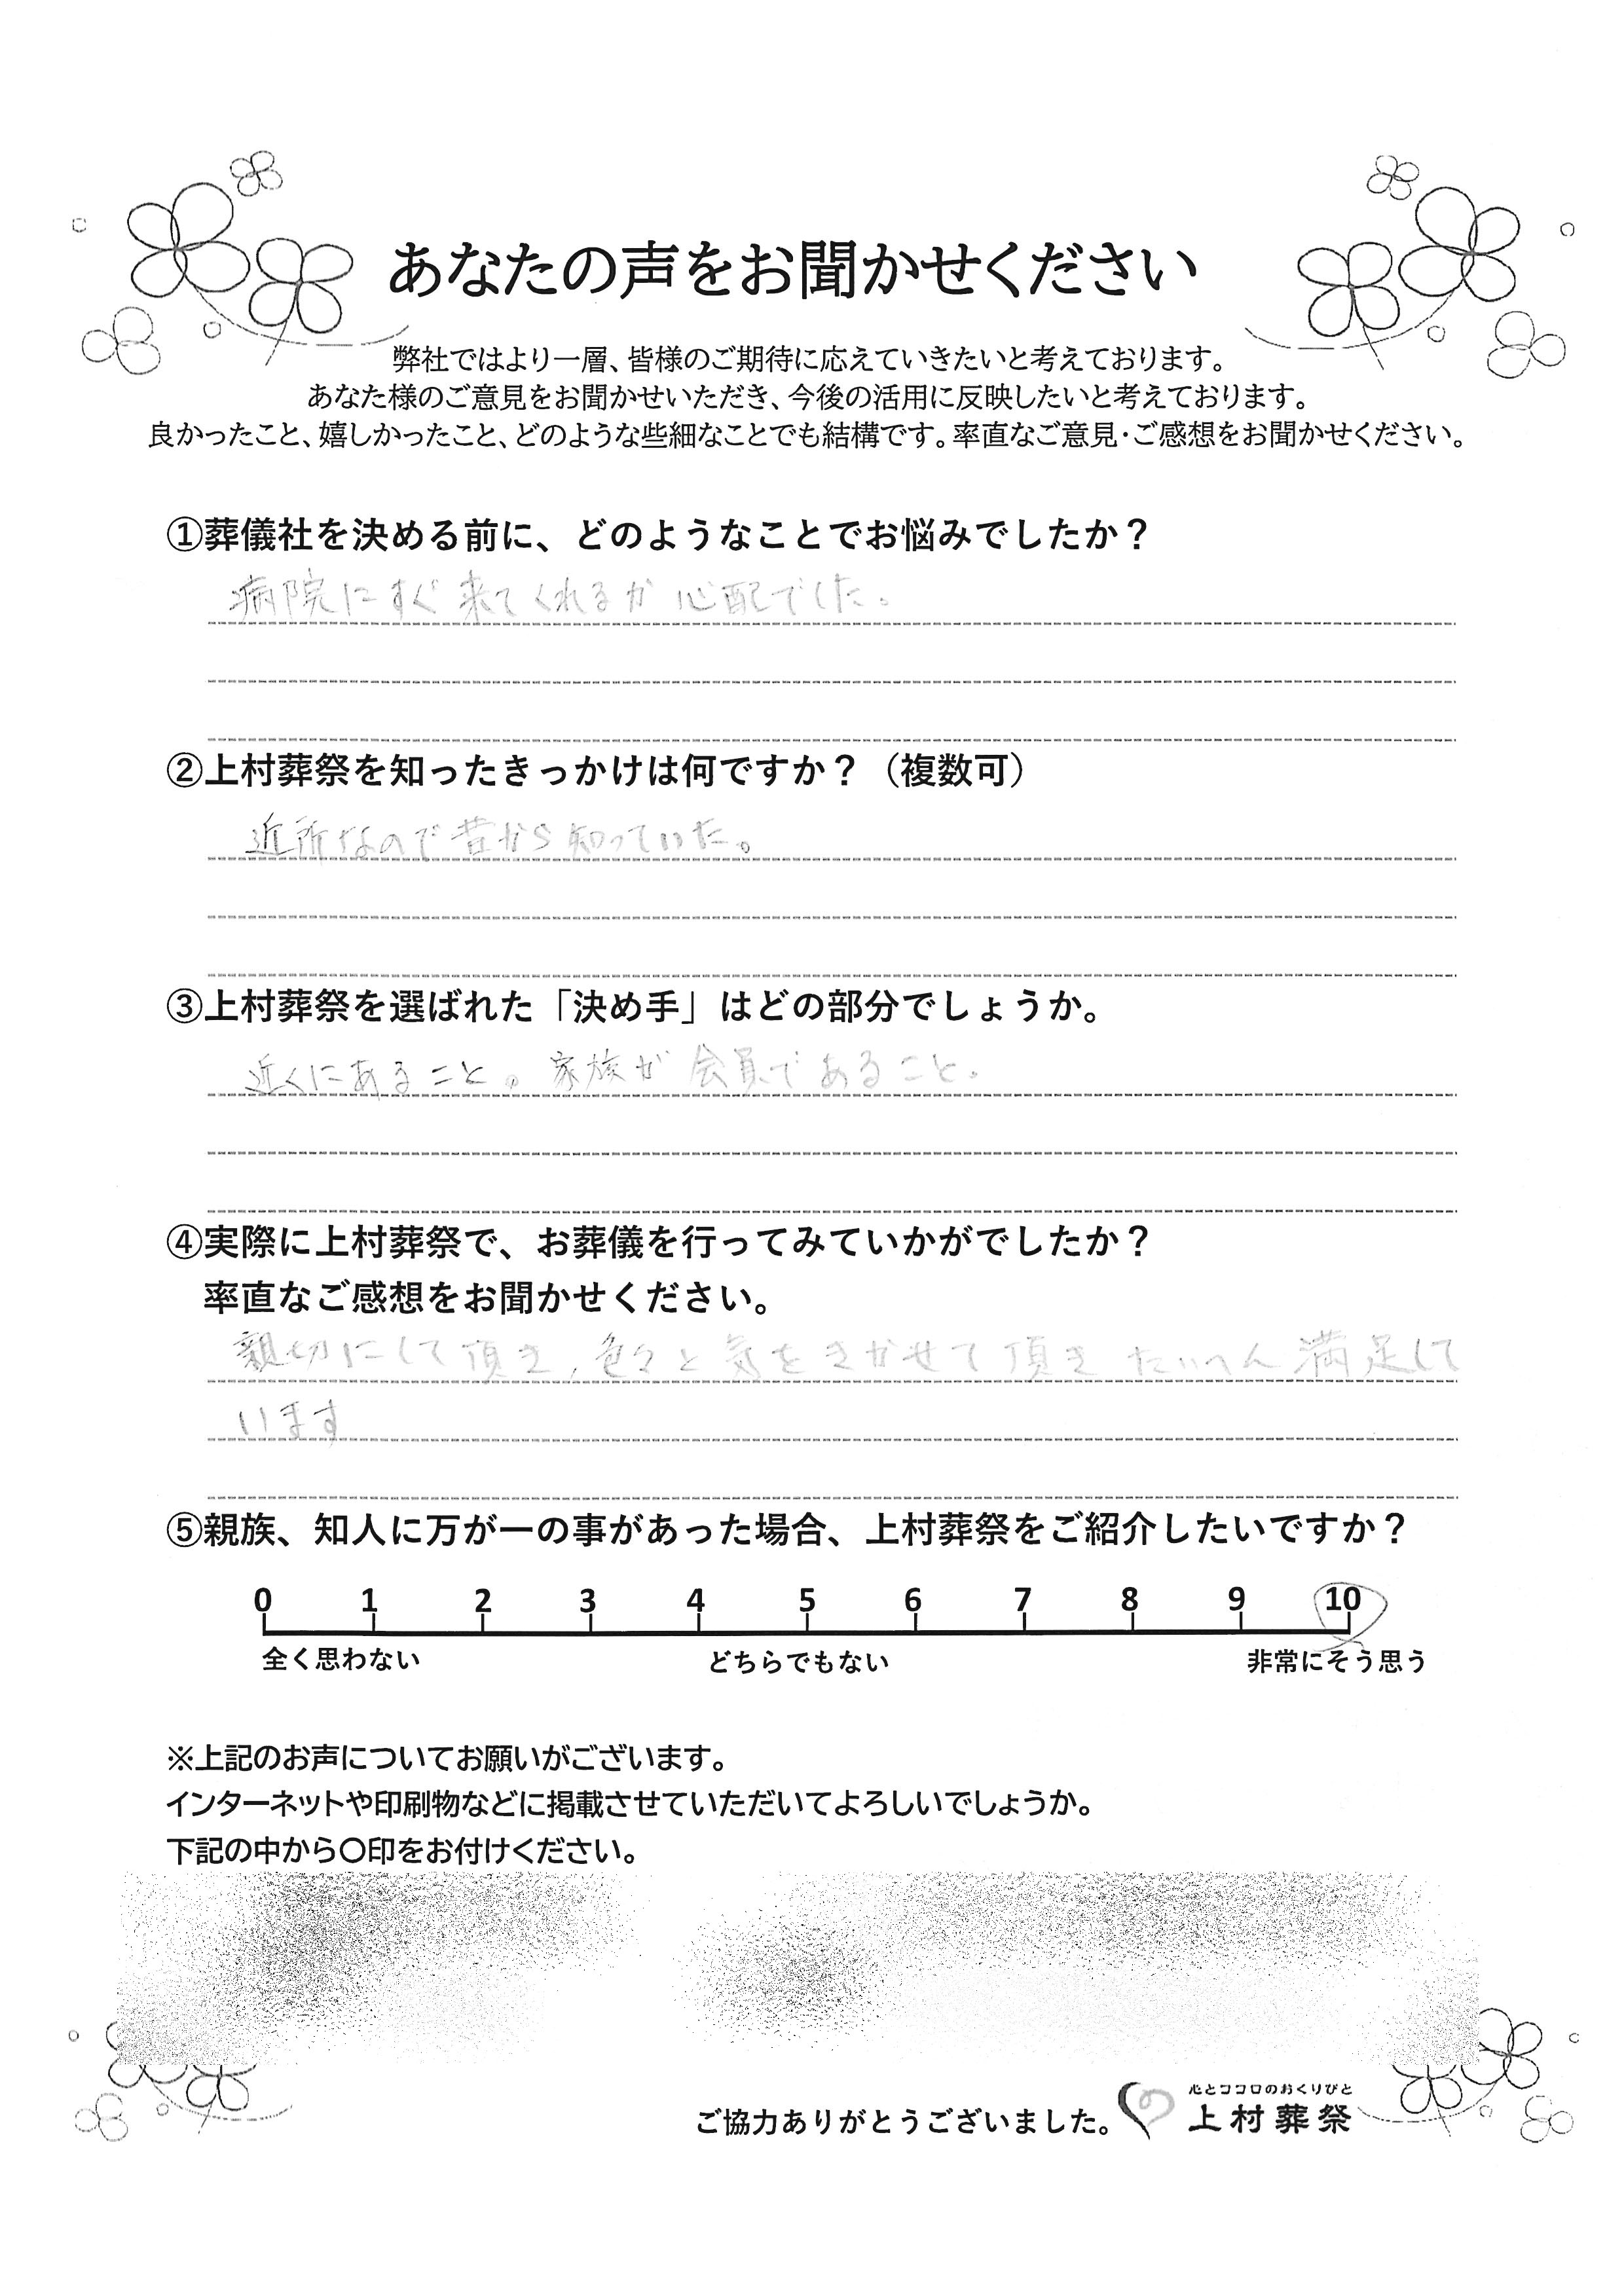 あなたの声をお聞かせください
弊社ではより一層、皆様のご期待に応えていきたいと考えております。
あなた様のご意見をお聞かせいただき、今後の活用に反映したいと考えております。
良かったこと、嬉しかったこと、どのような些細なことでも結構です。率直なご意見・ご感想をお聞かせください。
①葬儀社を決める前に、どのようなことでお悩みでしたか？
病院にすぐ来てくれるか心配でした。
②上村葬祭を知ったきっかけは何ですか？（複数可）
近所なので昔から知っていた。
③上村葬祭を選ばれた「決め手」はどの部分でしょうか。
近くにあること。家族が会員であること。
④実際に上村葬祭で、お葬儀を行ってみていかがでしたか？
率直なご感想をお聞かせください。
親切にして頂き、色々と気をきかせて頂きたいへん満足して
います
⑤親族、知人に万が一の事があった場合、上村葬祭をご紹介したいですか？
0 1 2 3 4 5 6 7 8 9 10
全く思わない どちらでもない 非常にそう思う
※上記のお声についてお願いがございます。
インターネットや印刷物などに掲載させていただいてよろしいでしょうか。
下記の中から〇印をお付けください。
心とココロのおくりびと
ご協力ありがとうございました。上村葬祭